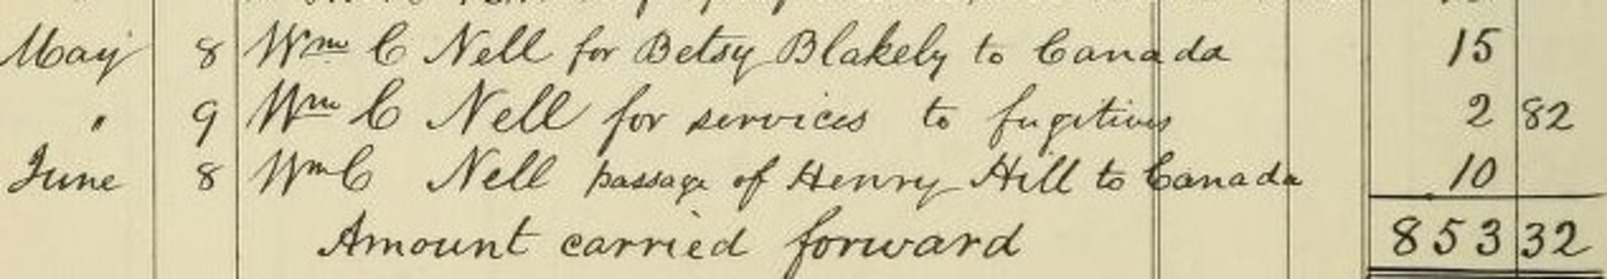 May 8 Wm C Nell for Betsy Blakely to Canada 15
" 9 Wm C Nell for services to fugitives 2 82
June 8 Wm C Nell passage of Henry Hill to Canada 10
Amount carried forward 853 32